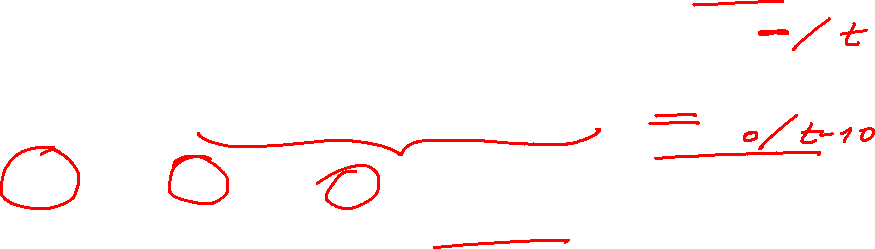 -/t
= 0/t-10